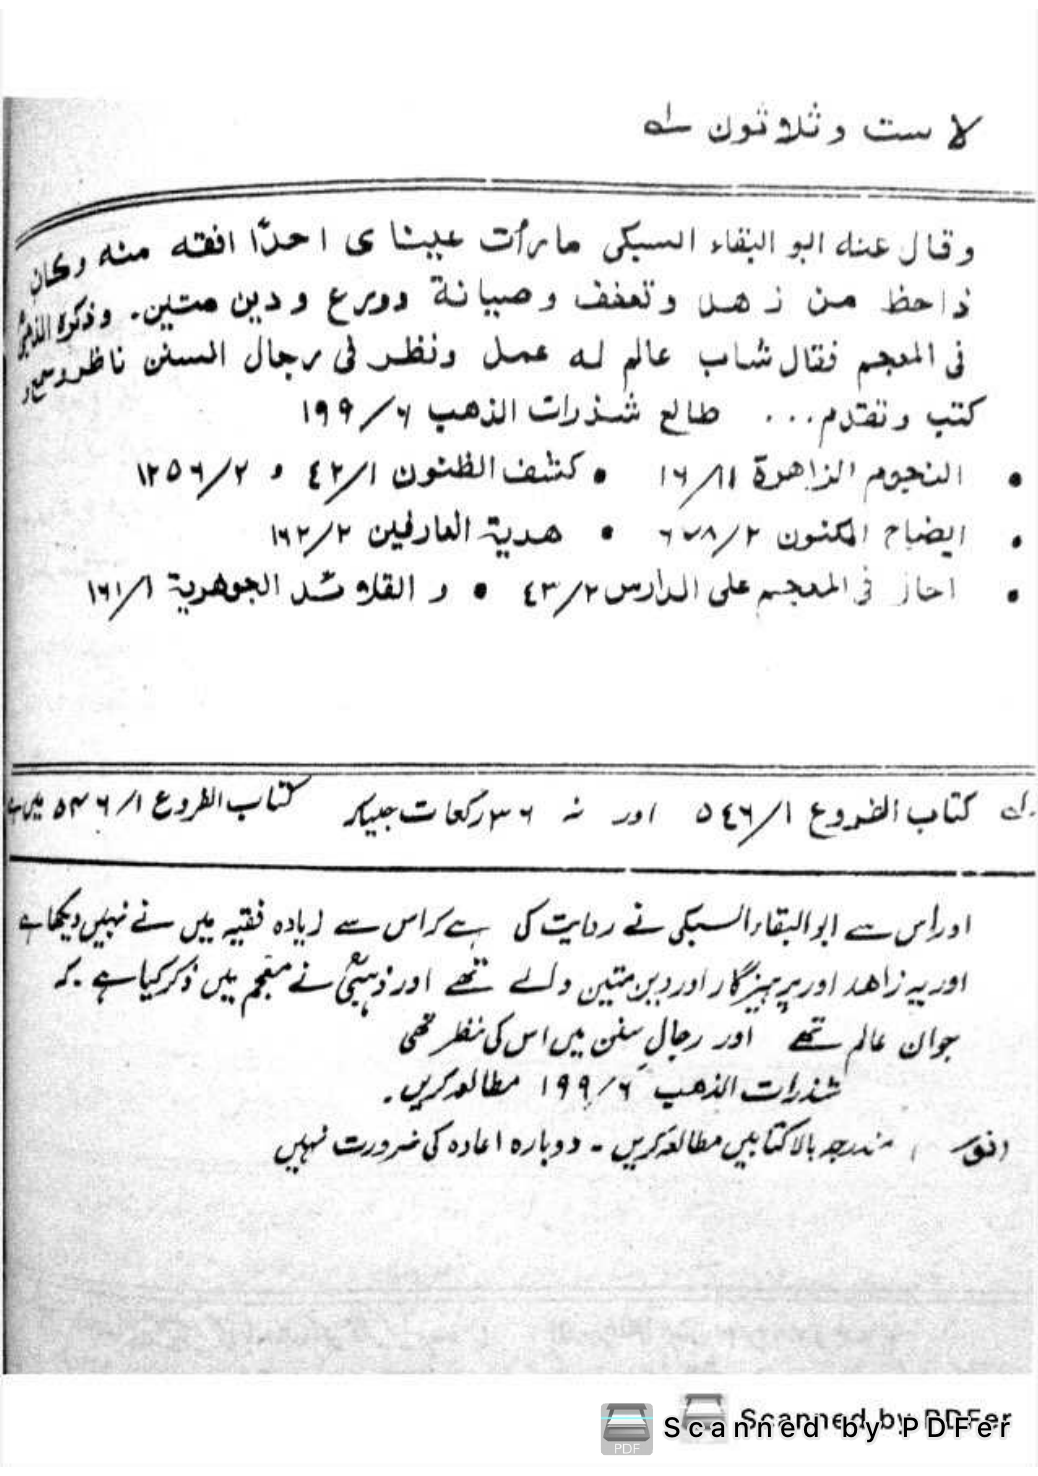 لا ست و ثلاثون لـه
وقال عنه ابو البقاء السبكى ما رأت عينا ى احدًا افقه منه وكان
ذا حظ من زهد وتعفف وصيانة وورع و دين متين۔ وذكره الذهبىؒ
فى المعجم فقال شاب عالم له عمل ونظر فى رجال السنن ناظر وسمع و
كتب وتقدم... طالع شذرات الذهب ٦/١٩٩
• النجوم الزاهرة ١١/١٦ • كشف الظنون ١/٤٢ و ٢/١٢٥٦
• ايضاح المكنون ٢/٦٧٨ • هدية العارفين ٢/١٦٢
• احاز فى المعجم على الدارس ٢/٤٣ • و القلائد الجوهرية ١/١٦١
لـه كتاب الفروع ١/٥٤٦ اور نہ ٣٦ رکعات جیسا کہ کتاب الفروع ١/٥٣٦ میں ہے
اور اس سے ابوالبقاء السبکی نے روایت کی ہے کہ اس سے زیادہ فقیہ میں نے نہیں دیکھا ہے
اور یہ زاهد اور پرہیزگار اور دین متین والے تھے اور ذہبیؒ نے معجم میں ذکر کیا ہے کہ
جوان عالم تھے اور رجالِ سنن میں اس کی نظر تھی
شذرات الذهب ٦/١٩٩ مطالعہ کریں۔
(نوٹ) مندرجہ بالا کتابیں مطالعہ کریں ۔ دوبارہ اعادہ کی ضرورت نہیں
Scanned by PDFer
PDF
Scanned by PDFer